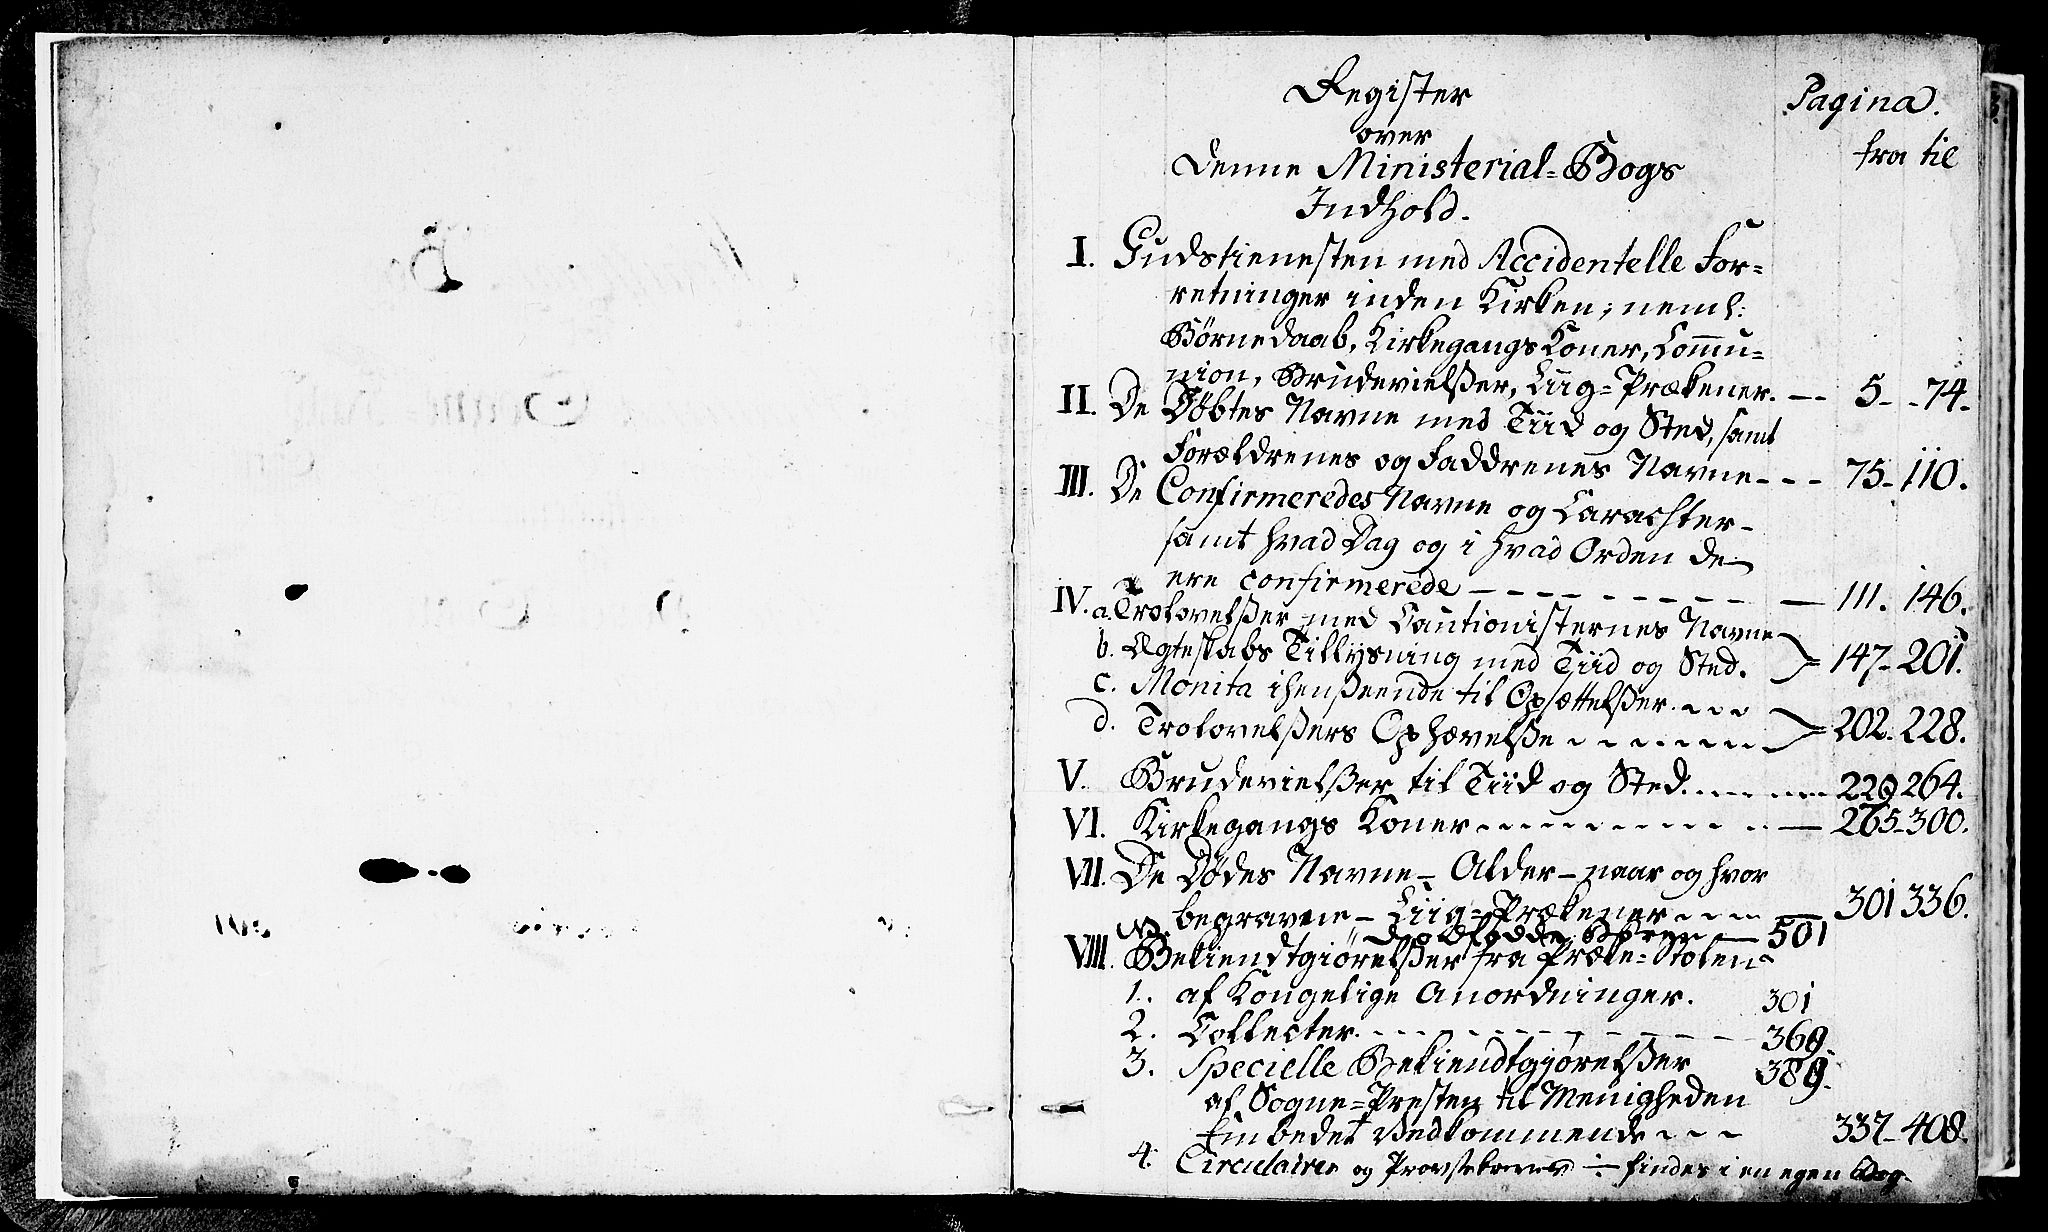 Register
Pagina.
over
fra til
denne Ministerial=Bogs
Indhold.
I. Gudstienesten med Accidentelle For=
retninger inden Kirken; neml:
Børnedaab, Kirkegangs Koner, Commu=
nion, Brudevielsser, Liig=Prækener. — 5 - 74.
II. De Døbtes Navne med Tiid og Sted, samt
Forældrenes og Faddrenes Navne - - - 75 - 110.
III. De Confirmeredes Navne og Carachter -
samt hvad Dag og i hvad Orden de
ere confirmerede - - - - - - - - - 111. 146.
IV. a. Trolovelsser med Cautionisternes Navne
b. Ægteskabs Tillysning med Tiid og Sted. 147 - 201.
c. Monita ihenseende til Opsættelsser - - -
d. Trolovelssers Ophævelsse - - - - - - - 202. 228.
V. Brudevielsser til Tiid og Sted. - - - - - - 229 264.
VI. Kirkegangs Koner - - - - - - - - - - - 265 - 300.
VII. De Dødes Navne - Alder - naar og hvor
begravne - Liig=Prækener - - - - 301 336.
NB. Børn — 501
VIII. Bekiendtgiørelsser fra Præke=Stolen
1. af Kongelige Anordninger. 301
2. Collecter. - - - - - - - - - - 369.
3. Specielle Bekiendtgjørelsser 389.
af Sogne=Presten til Menigheden
Embedet Vedkommende - - - 337 - 408.
4. Circulairer og Provstebreve ÷ findes i en egen Bog.